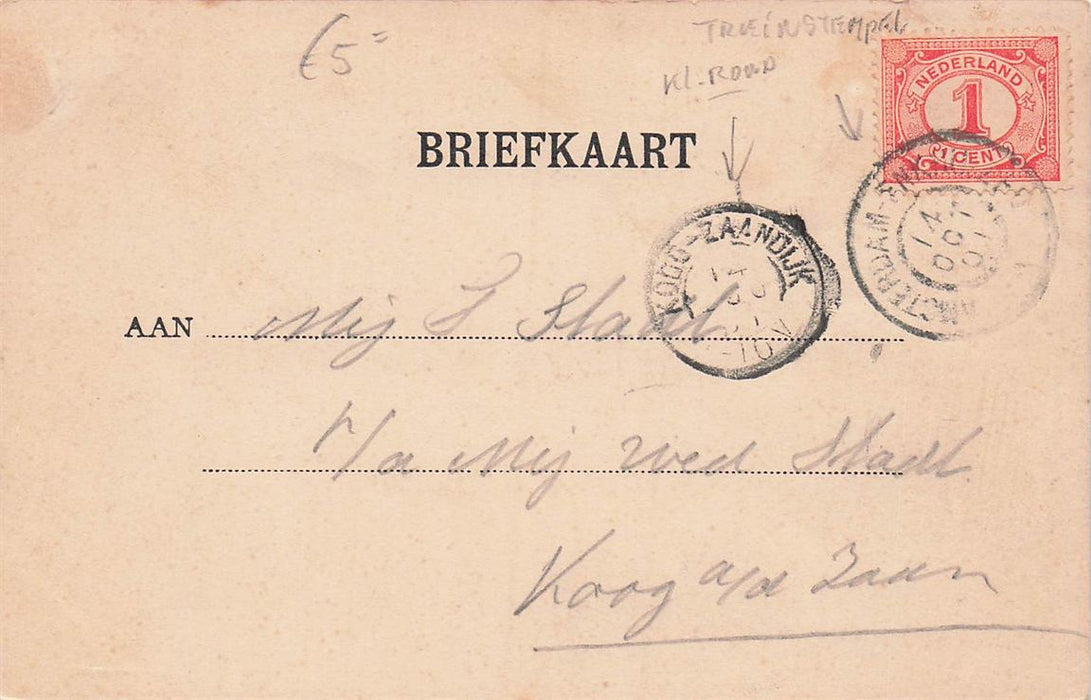 €5=
TREINSTEMPEL
Kl. ROND
NEDERLAND
1
1 CENT
BRIEFKAART
AMSTERDAM-ENK
14 OCT 01
KOOG-ZAANDIJK
14
10-
AAN Mej S Stadt
p/a Mej Wed Stadt
Koog a/d Zaan